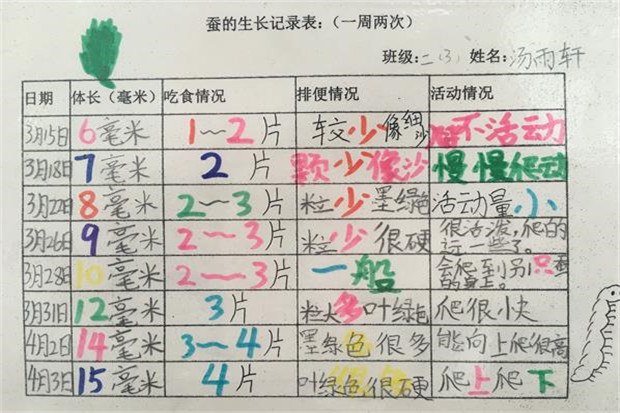 蚕的生长记录表：（一周两次）
班级：二（3） 姓名：汤雨轩
日期 体长（毫米） 吃食情况 排便情况 活动情况
3月15日 6毫米 1～2片 较少像细沙 不活动
3月18日 7毫米 2片 颗少像沙 慢慢爬动
3月22日 8毫米 2～3片 粒少墨绿色 活动量小
3月26日 9毫米 2～3片 粒少很硬 很活泼，爬的
远一些了。
3月28日 10毫米 2～3片 一般 会爬到别只蚕
的身上。
3月31日 12毫米 3片 粒大多叶绿色 爬很快
4月2日 14毫米 3～4片 墨绿色很多 能向上爬很高
4月3日 15毫米 4片 叶绿色很硬 爬上爬下